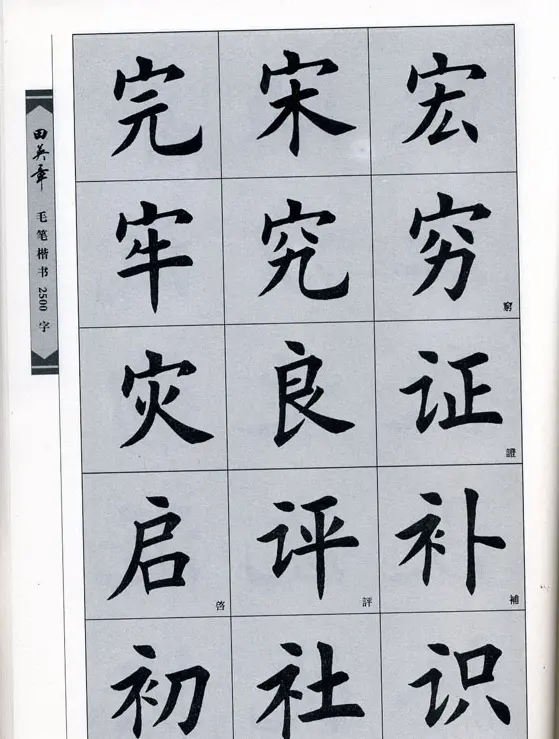 田英章
毛笔楷书2500字
宏 宋 完
穷 窮 究 牢
证 證 良 灾
补 補 评 評 启 啓
识 社 初